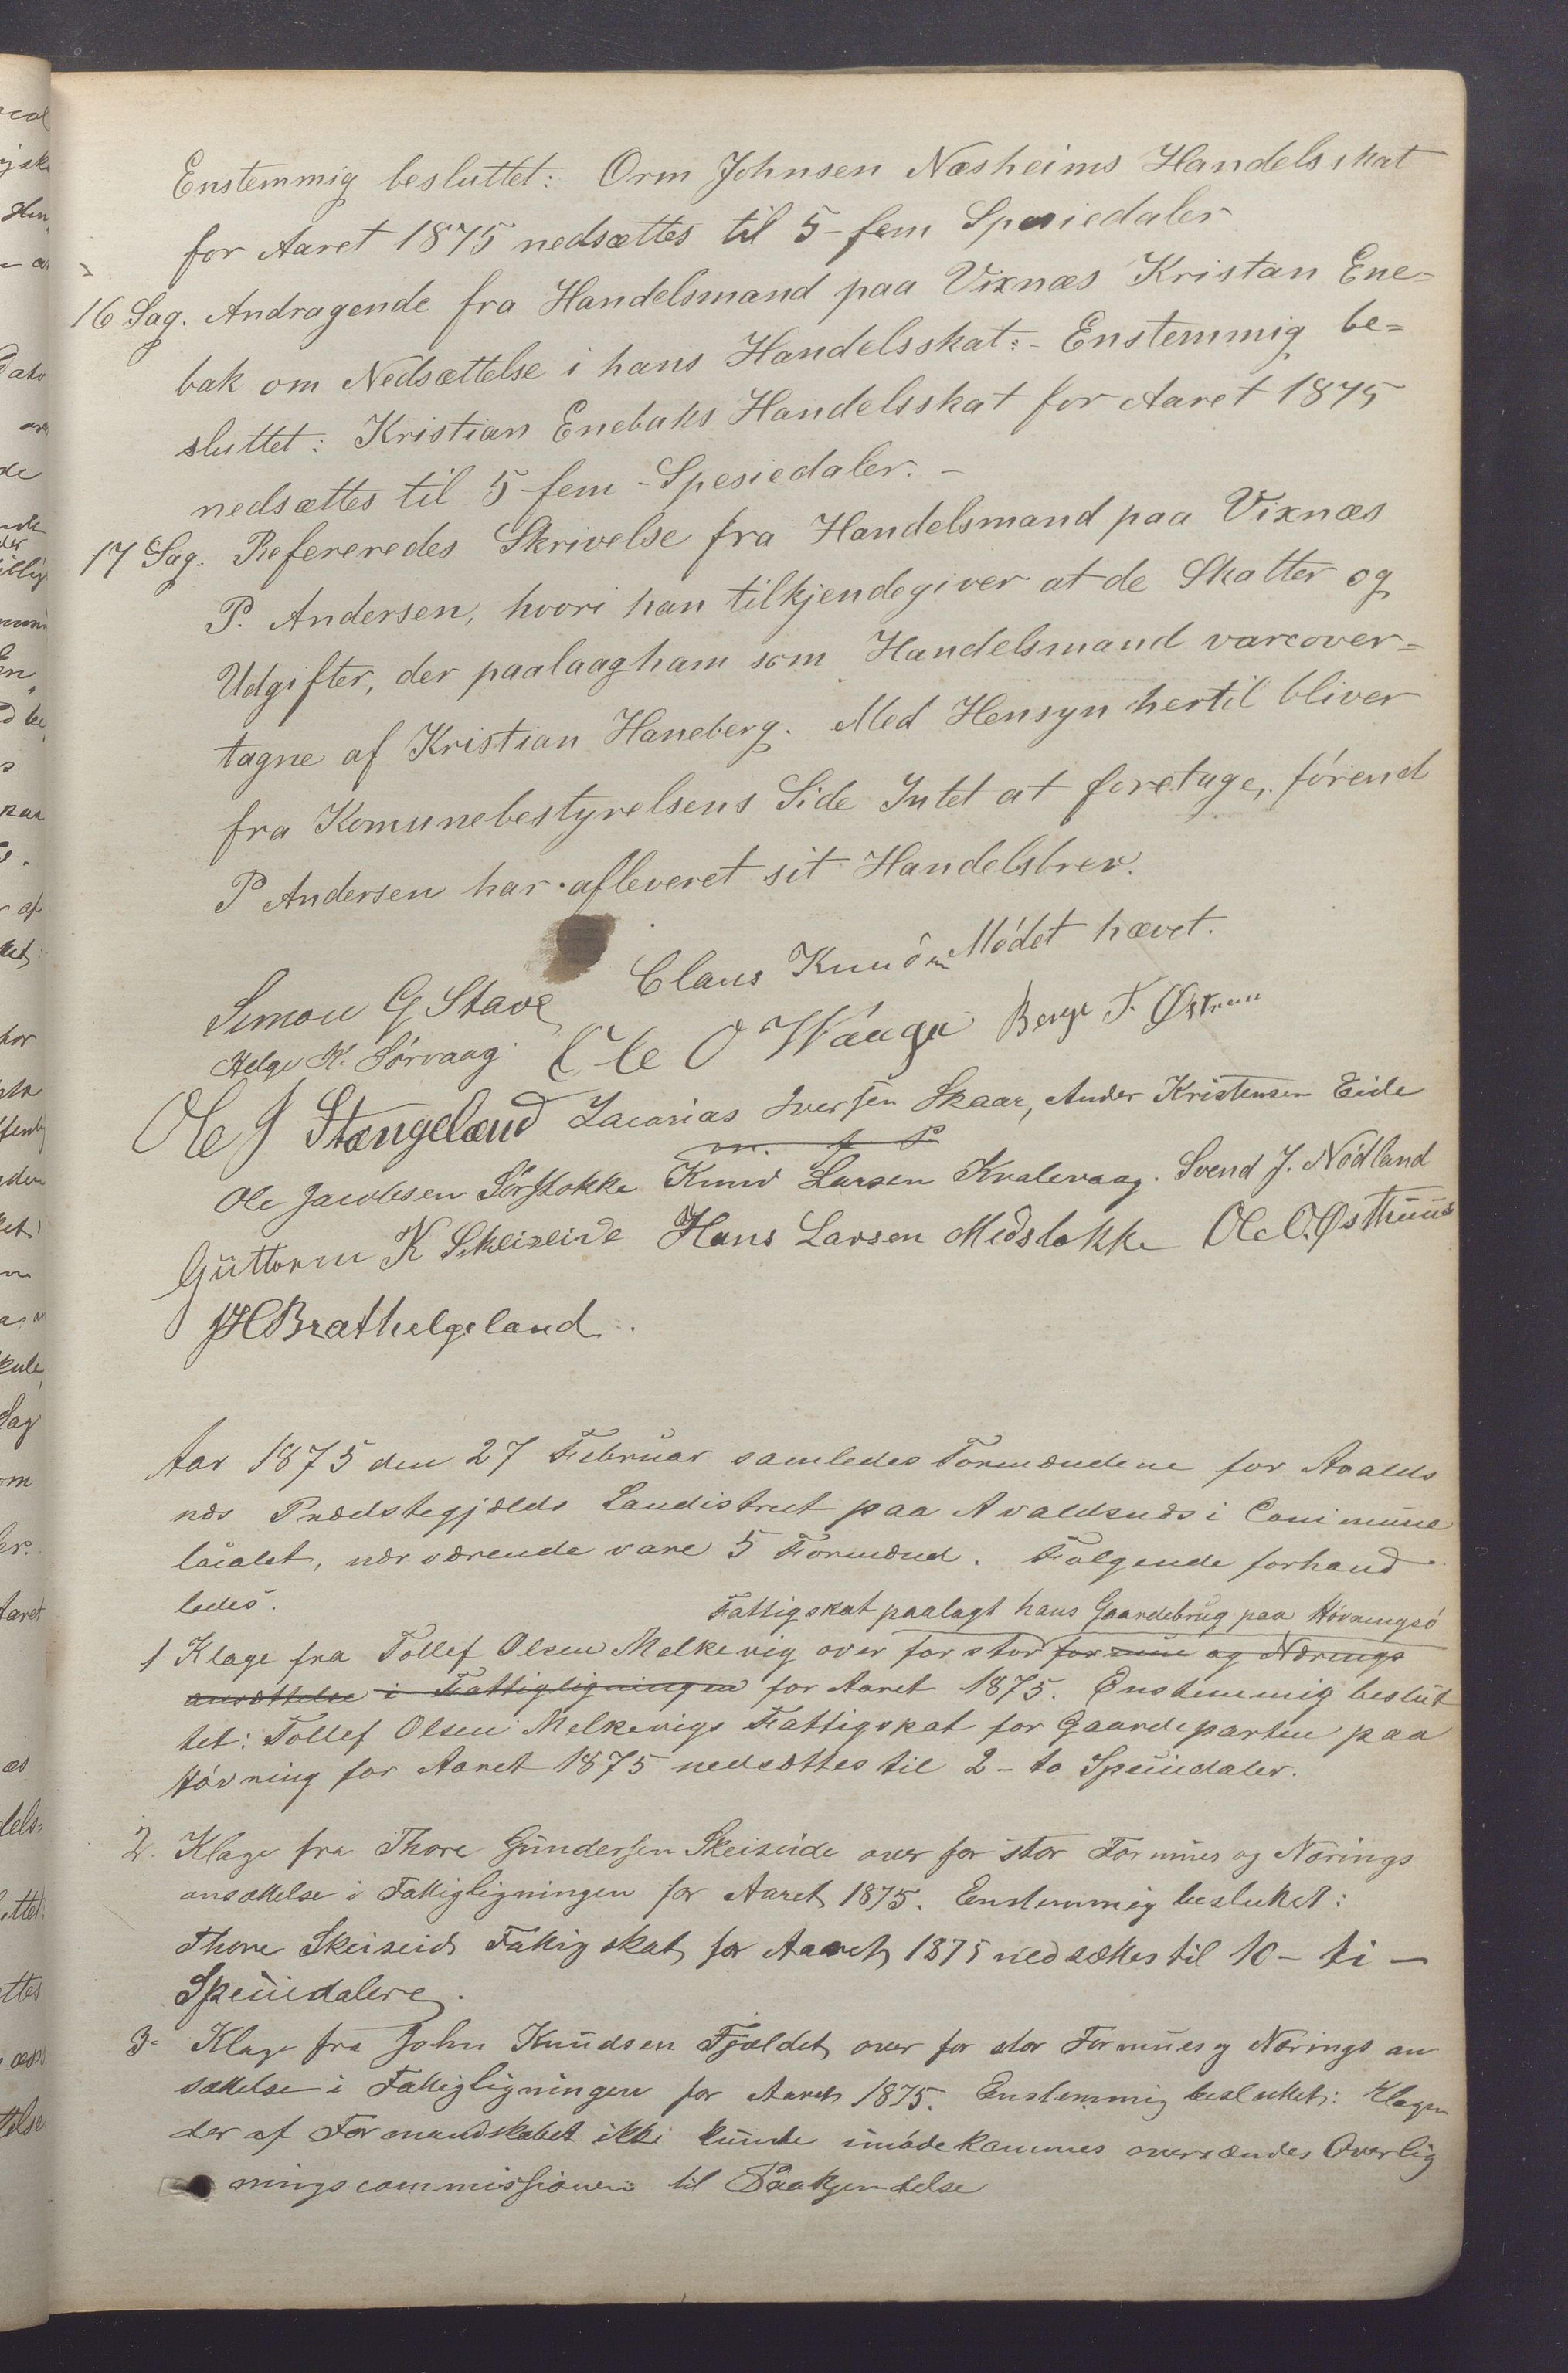 Enstemmig besluttet: Orm Johnsen Næsheims Handelsskat
for Aaret 1875 nedsættes til 5 - fem Spesiedaler
16 Sag. Andragende fra Handelsmand paa Vixnæs Kristan Ene=
bak om Nedsættelse i hans Handelsskat: - Enstemmig be=
sluttet: Kristian Enebaks Handelsskat for Aaret 1875
nedsættes til 5 - fem - Spesiedaler. -
17 Sag. Refereredes Skrivelse fra Handelsmand paa Vixnæs
P. Andersen, hvori han tilkjendegiver at de Skatter og
Udgifter, der paalaag ham som Handelsmand vare over=
tagne af Kristian Haneberg. Med Hensyn hertil bliver
fra Komunebestyrelsens Side Intet at foretage, førend
P Andersen har afleveret sit Handelsbrev.
Mødet hævet.
Simon G Stave Claus Knudsen
Helge K. Sørvaag Ole O Waage Berge T. Østrem
Ole J Stangeland Zacarias Iversen Skaar, Ander Kristensen Eide
m. f. P.
Ole Jacobsen Sørstokke Knud Larsen Kvalevaag. Svend J. Nødland
Guttorm K Skeiseide Hans Larsen Midstokke Ole O. Østhuus
JH Brathelgeland.
Aar 1875 den 27 Februar samledes Formændene for Avalds
næs Prædstegjælds Landistrict paa Avaldsnæs i Commune
localet, nærværende vare 5 Formænd. Følgende forhand
ledes.
Fattigskat paalagt hans Gaardebrug paa Høvningsø
1 Klage fra Tollef Olsen Melkevig over for stor formue og Nærings
ansættelse i Fattigligningen for Aaret 1875. Enstemmig beslut
tet: Tollef Olsen Melkevigs Fattigskat for Gaardeparten paa
Høvning for Aaret 1875 nedsættes til 2 - to Speciedaler.
2. Klage fra Thore Gundersen Skeiseide over for stor Formues og Nærings
ansættelse i Fattigligningen for Aaret 1875. Enstemmig besluttet:
Thore Skeiseids Fattigskat for Aaret 1875 nedsættes til 10 - ti -
Speciedalere.
3. Klage fra John Knudsen Fjældet over for stor Formues og Nærings an
sættelse i Fattigligningen for Aaret 1875. Enstemmig besluttet: Klagen
der af Formandskabet ikke kunde imødekommes oversændes Overlig
ningscommissionen til Paakjendelse